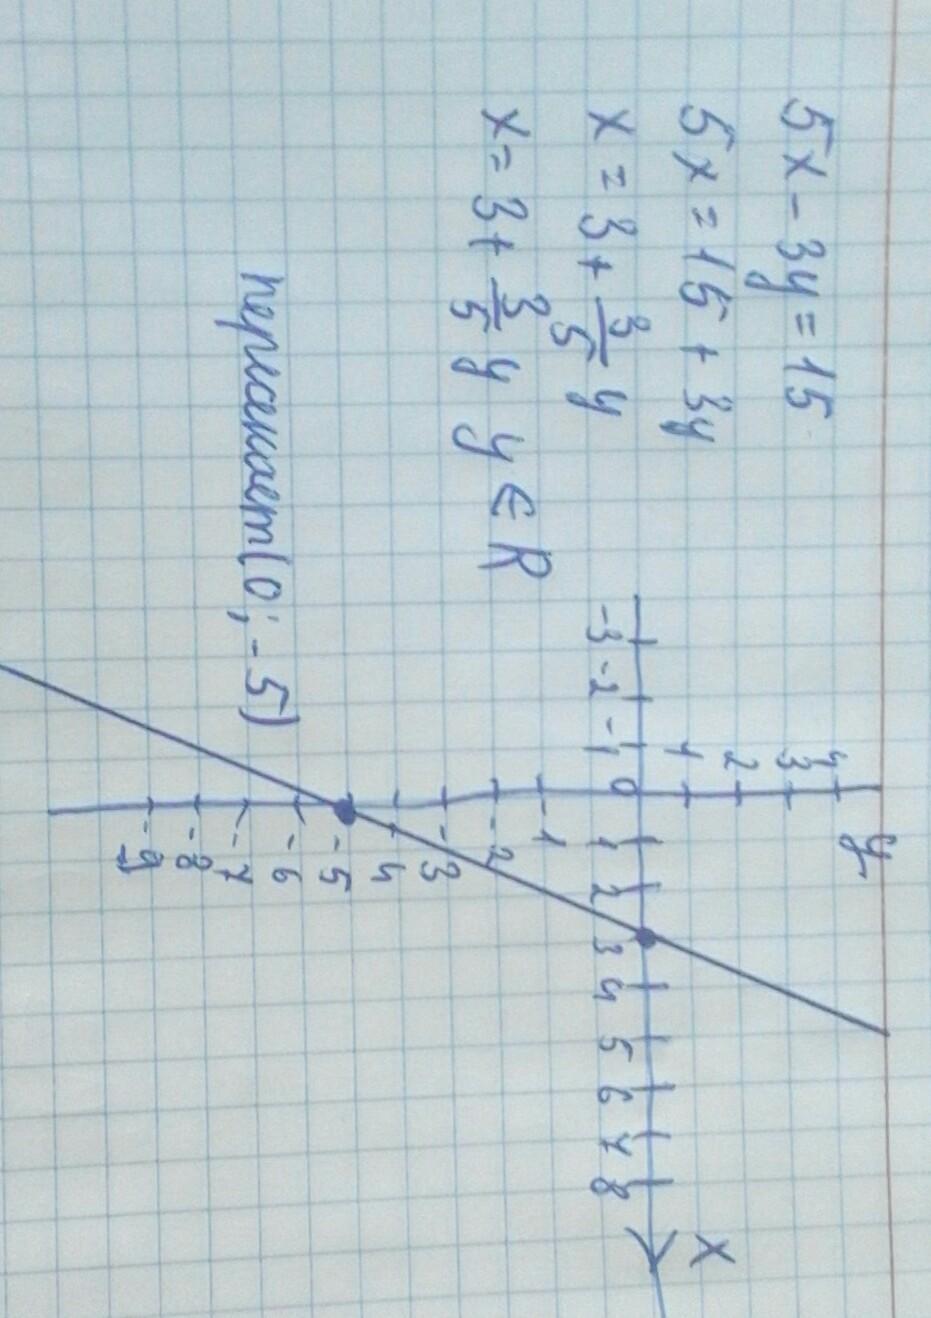 5x - 3y = 15
5x = 15 + 3y
x = 3 + 3/5 y
x = 3 + 3/5 y y ∈ R
персекает (0; -5)
y
4
3
2
1
-3 -2 -1 0 1 2 3 4 5 6 7 8
x
-1
-2
-3
4
-5
-6
-7
-8
-9